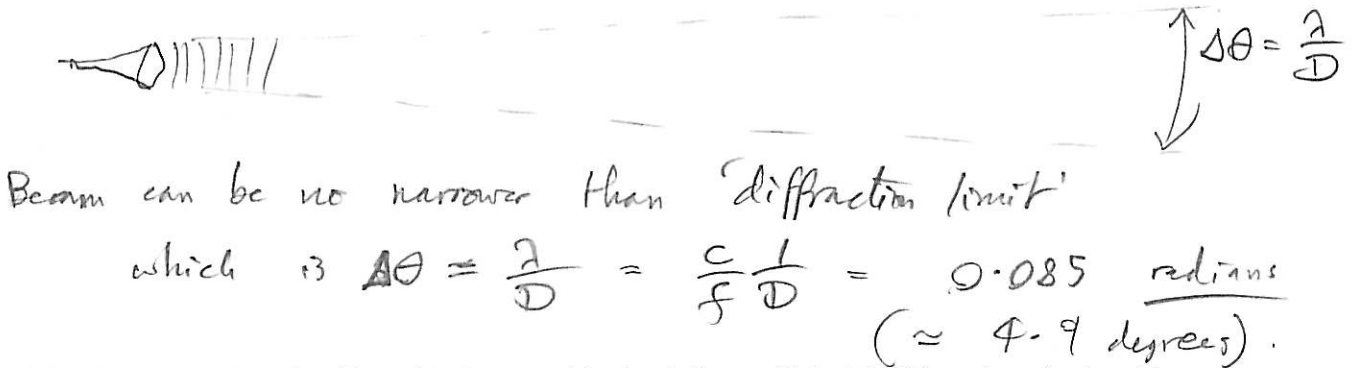 Δθ = λ/D
Beam can be no narrower than 'diffraction limit'
which is Δθ = λ/D = c/f 1/D = 0.085 radians
(≃ 4.9 degrees).